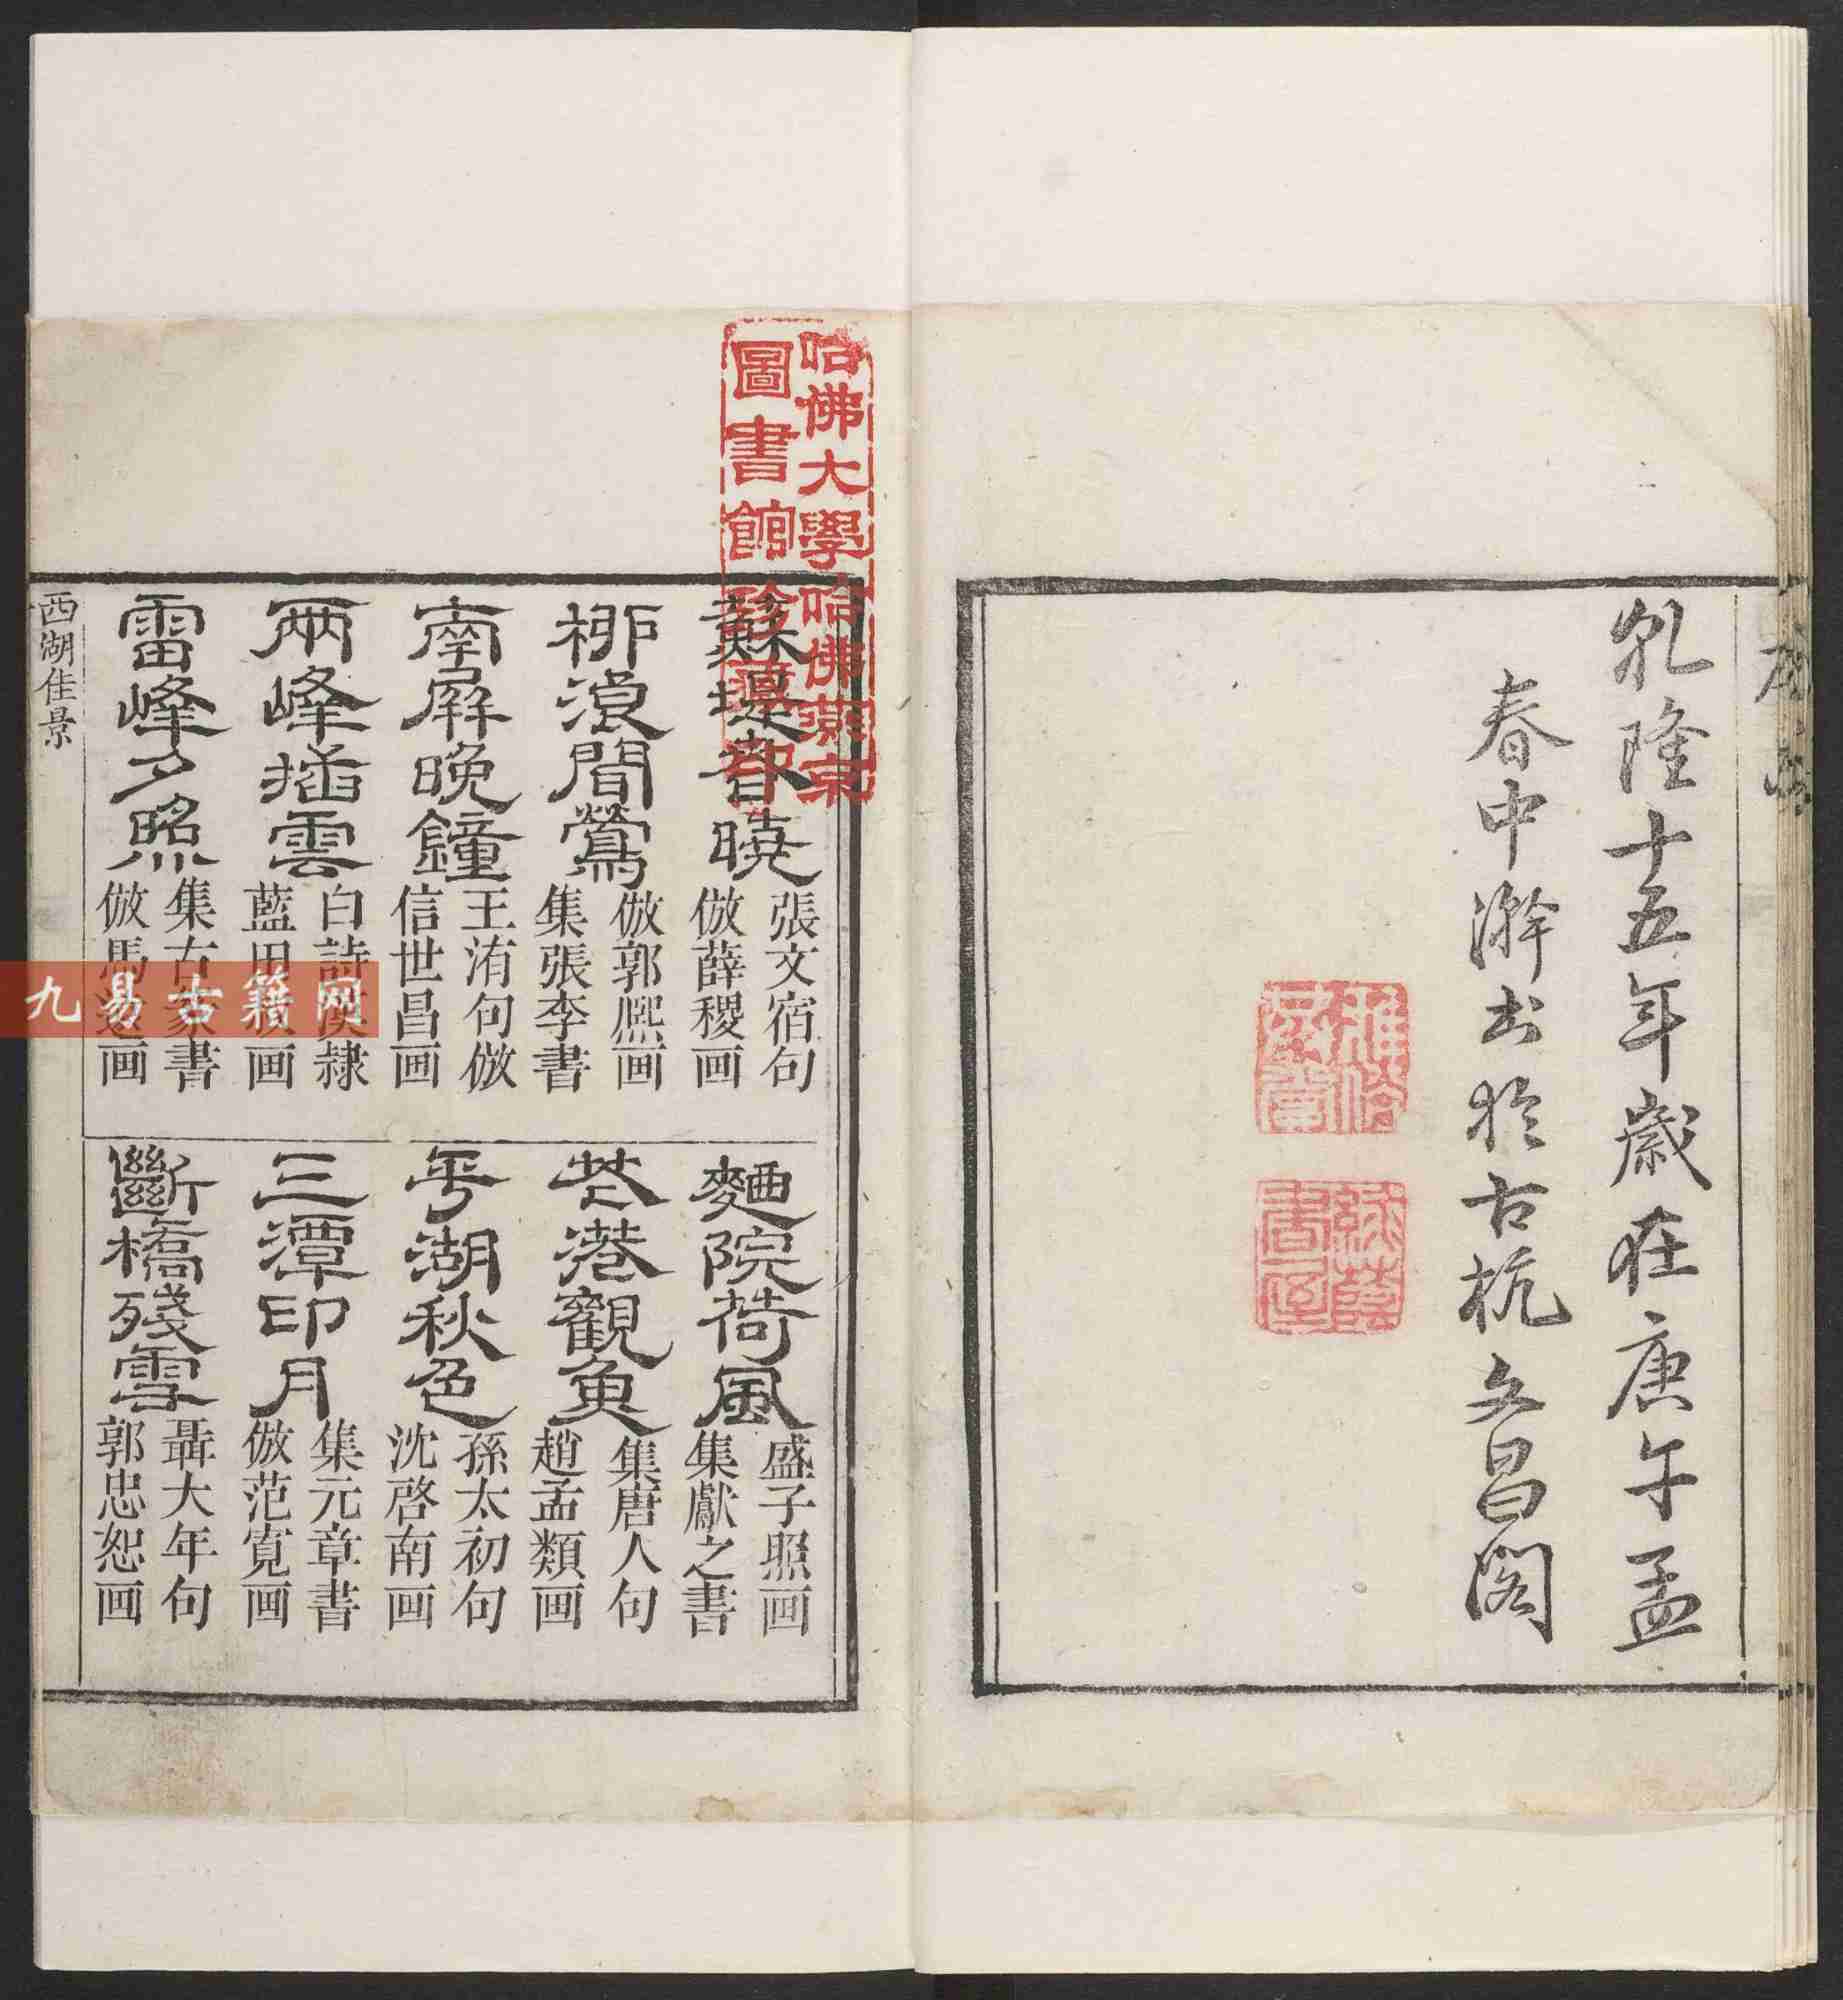 乾隆十五年歲在庚午孟
春中澣书於古杭文昌閣
哈佛大學哈佛燕京
圖書館
蘇堤春曉
張文宿句
倣薛稷画
栁浪聞鶯
倣郭熈画
集張李書
南屏晚鐘
王洧句倣
信世昌画
兩峰插雲
白詩漢隸
藍田画
雷峰夕照
集古篆書
倣馬遠画
麯院荷風
盛子照画
集獻之書
芲港觀魚
集唐人句
趙孟類画
平湖秋色
孫太初句
沈啓南画
三潭印月
集元章書
倣范寬画
斷橋殘雪
聶大年句
郭忠恕画
西湖佳景
九易古籍网